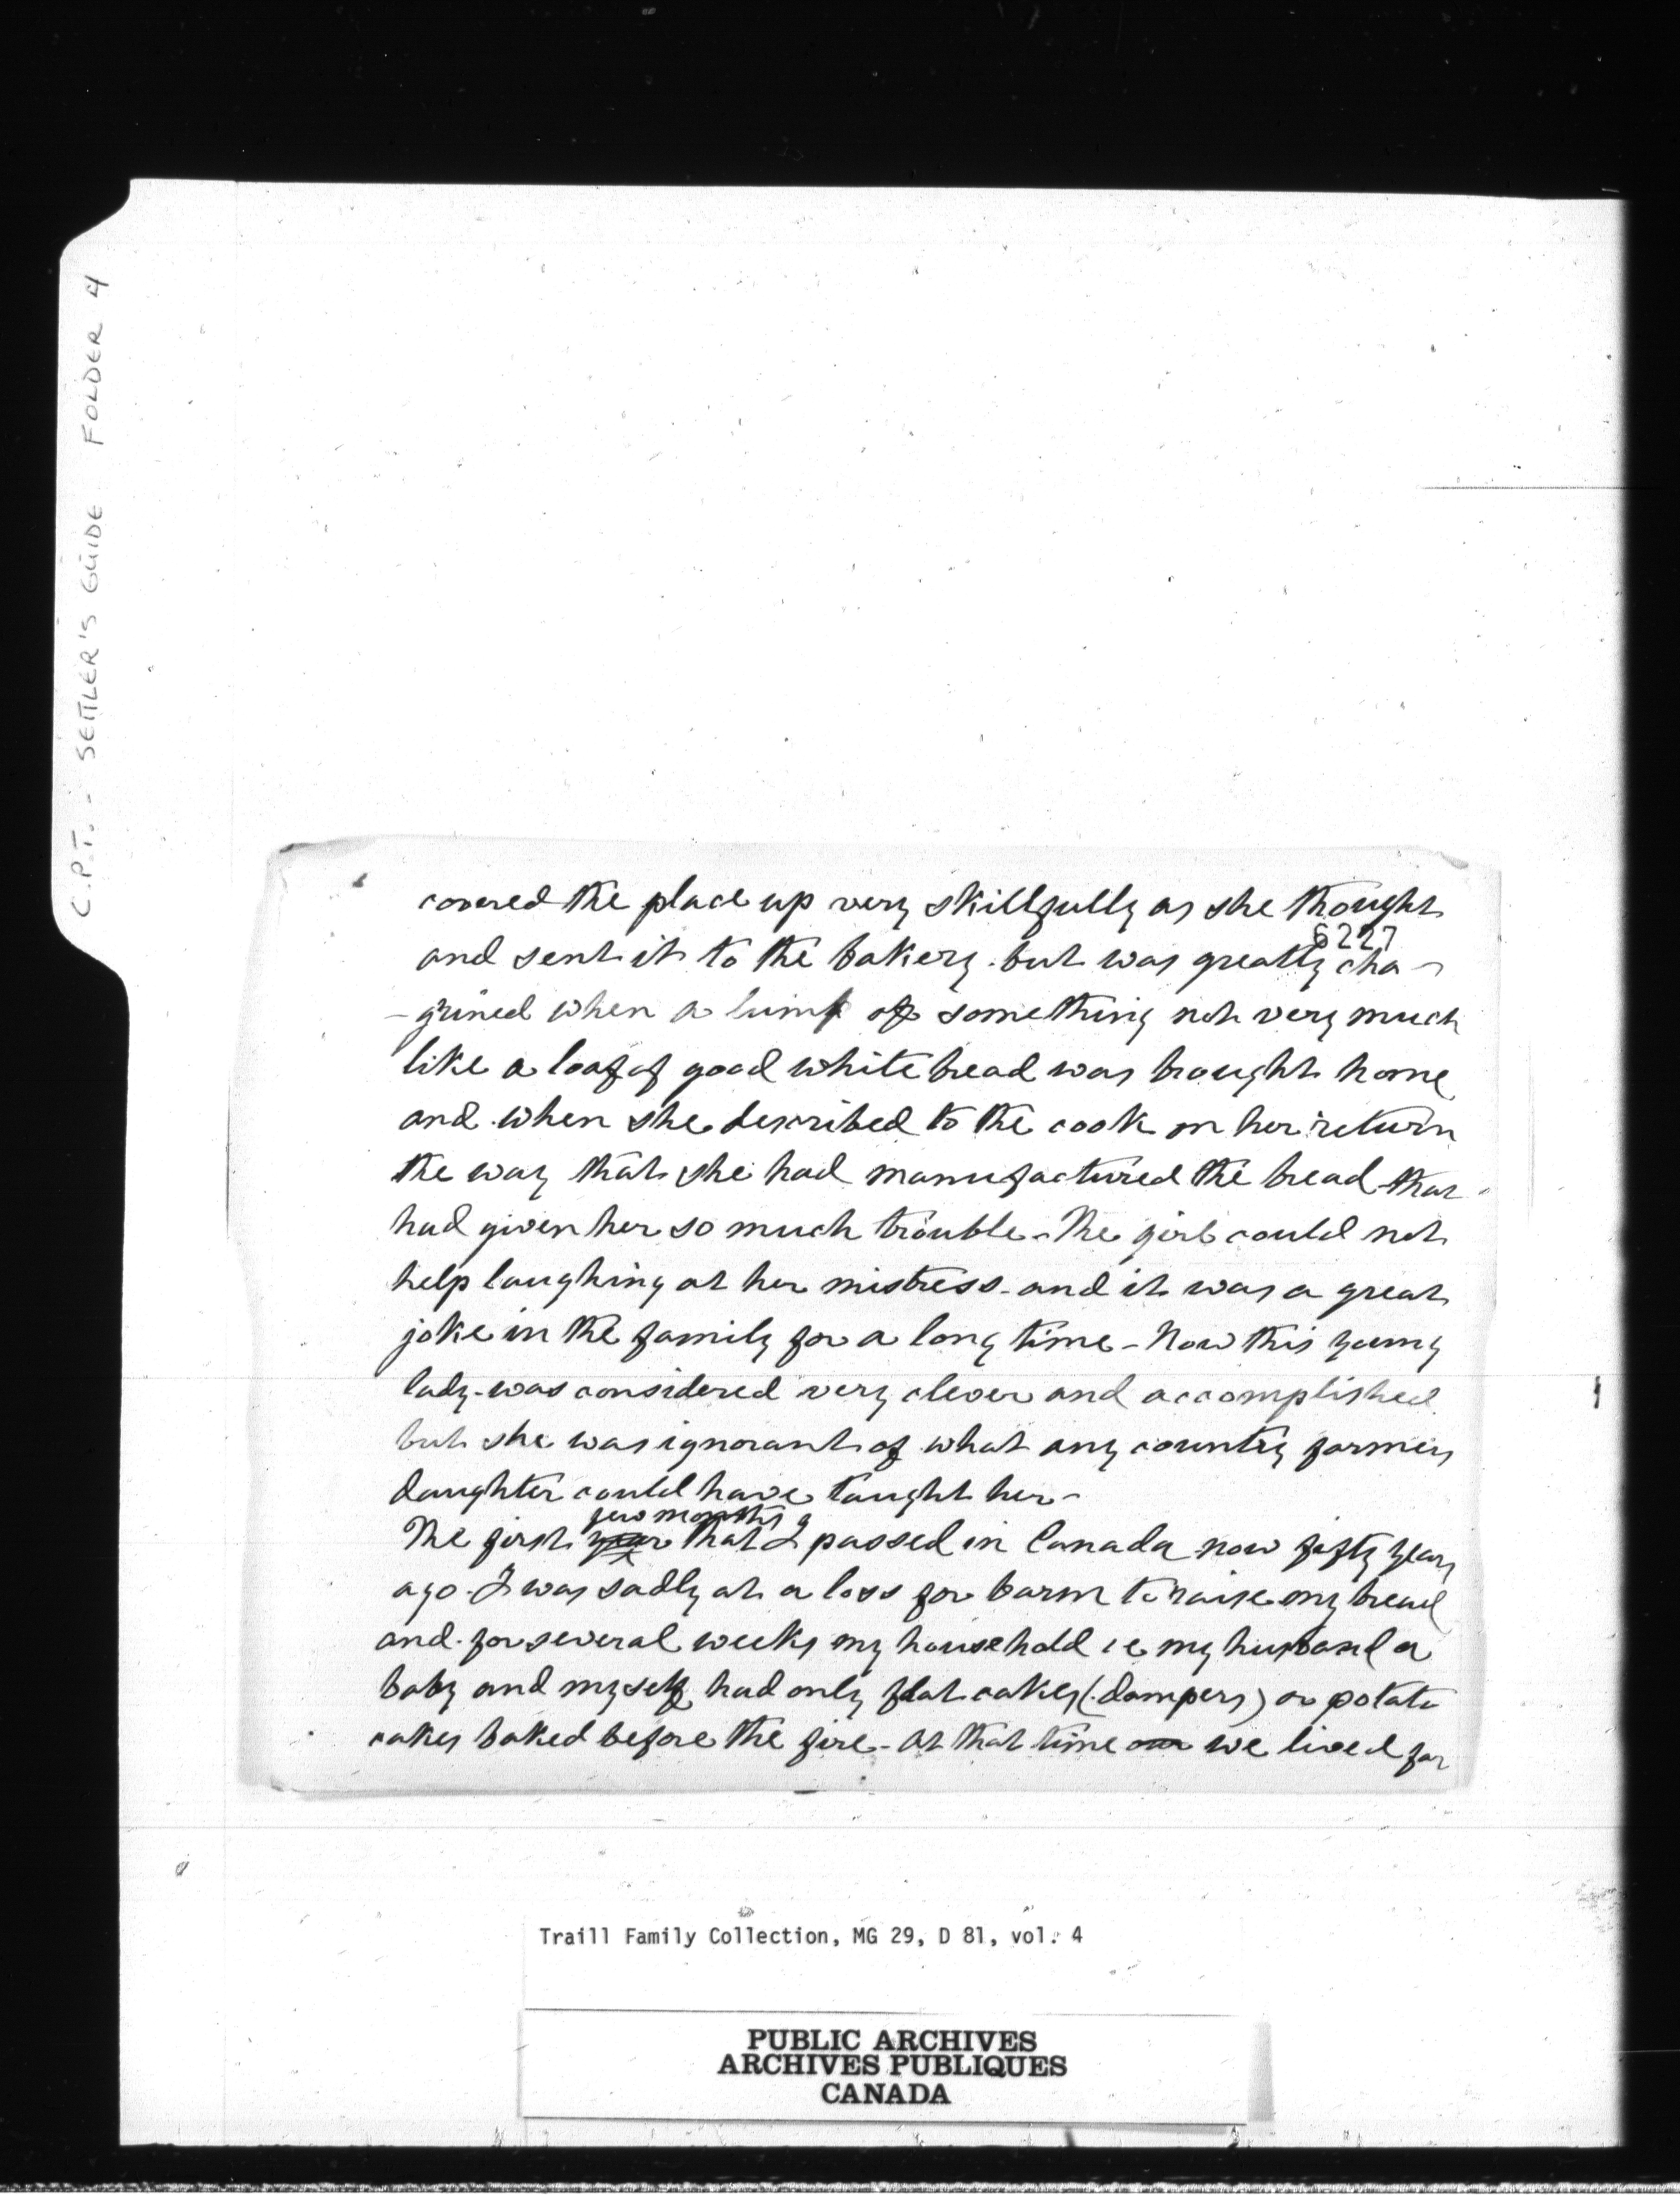 C.P.T. - SETTLER'S GUIDE FOLDER 4
covered the place up very skillfully as she thought
6227
and sent it to the bakery. but was greatly cha-
-grined when a lump of something not very much
like a loaf of good white bread was brought home
and when she described to the cook on her return
the way that she had manufactured the bread that
had given her so much trouble - The girl could not
help laughing at her mistress - and it was a great
joke in the family for a long time - Now this young
lady - was considered very clever and accomplished
but she was ignorant of what any country farmers
daughter could have taught her -
few months
The first year that I passed in Canada now fifty years
ago - I was sadly at a loss for barm to raise my bread
and for several weeks my household ie my husband a
baby and myself had only flat cakes (dampers) or potato
cakes baked before the fire - At that time our we lived far
Traill Family Collection, MG 29, D 81, vol. 4
PUBLIC ARCHIVES
ARCHIVES PUBLIQUES
CANADA